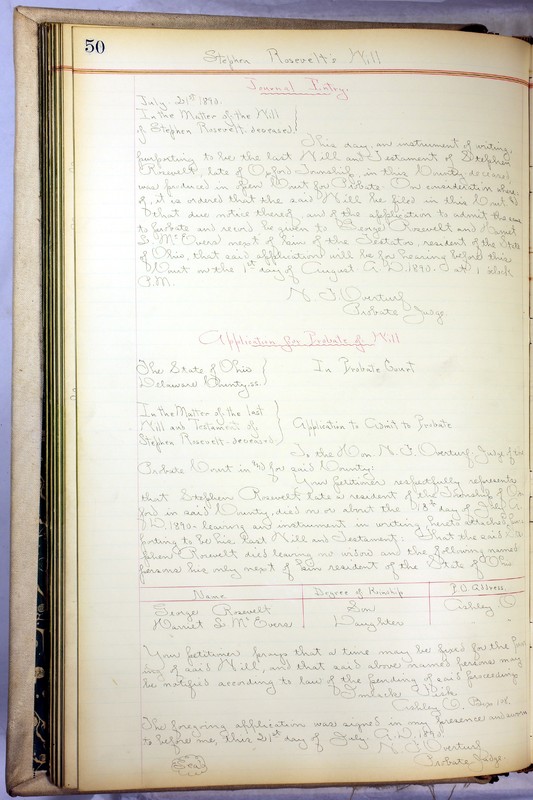 50
Stephen Rosevelt's Will
Journal Entry.
July 21st 1890.
In the Matter of the Will
of Stephen Rosevelt, deceased.
This day, an instrument of writing,
purporting to be the last Will and Testament of Stephen
Rosevelt, late of Oxford Township, in this County, deceased,
was produced in Open Court for Probate. On consideration where-
of, it is ordered that the said Will be filed in this Court &
that due notice thereof, and of the application to admit the same
to probate and record be given to George Rosevelt and Harriet
S. McEvers next of kin of the Testator, resident of the State
of Ohio, that said application will be for hearing before this
Court on the 1st day of August A.D. 1890. at 1 o'clock
P.M.
N. F. Overturf
Probate Judge.
Application for Probate of Will
The State of Ohio
Delaware County, ss.
In Probate Court
In the Matter of the last
Will and Testament of
Stephen Rosevelt - deceased.
Application to Admit to Probate
To the Hon. N. F. Overturf, Judge of the
Probate Court in and for said County:
Your petitioner respectfully represents
that Stephen Rosevelt late a resident of the Township of Ox-
ford in said County, died on or about the day of July A.
D. 1890. leaving an instrument in writing hereto attached, pur-
porting to be his Last Will and Testament; That the said Ste-
phen Rosevelt died leaving no widow and the following named
persons his only next of kin resident of the State of Ohio
Name Degree of Kinship P.O. Address
George Rosevelt Son Ashley, O.
Harriet S. McEvers Daughter "
Your petitioner prays that a time may be fixed for the prov-
ing of said Will, and that said above named persons may
be notified according to law of the pending of said proceedings
Ashley O. Box
The foregoing application was signed in my presence and sworn
to before me, this 21st day of July A.D. 1890.
N. F. Overturf
Probate Judge.
Seal